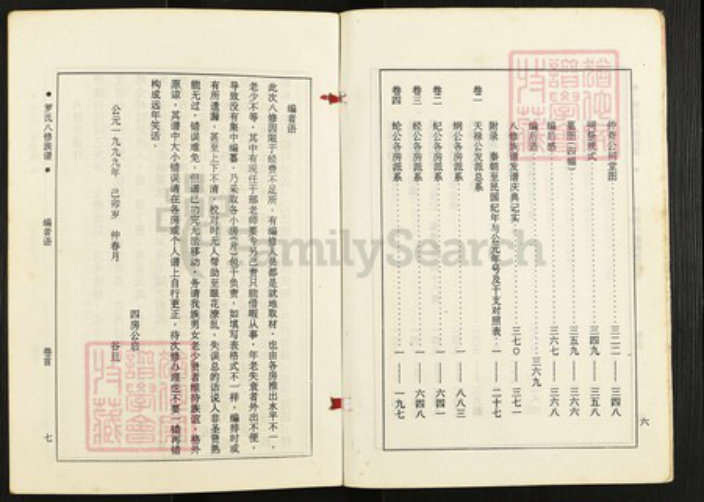 仲奇公祠堂图……三二二——三四八
祠祭规式……三四九——三五八
墓图(四幅)……三五九——三六六
编后感……三六七——三六八
编者语……三六九
八修族谱发谱庆典记实……三七〇——三七一
附录 秦朝至民国纪年与公元年号及干支对照表…一——二十七
卷一 天禄公发派总系
纲公各房派系……一——八八三
卷二 纪公各房派系……一——六四一
卷三 经公各房派系……一——六四八
卷四 纶公各房派系……一——一九七
六
编者语
此次八修因限于经费不足所,有编修人员都是就地取材,也由各房推出水平不一,
老少不等,其中有现任干部老师要专另己责只能借暇从事,年老失衰者外出不便,
导致没有集中编纂,乃采取各小房(月)包干负责,如填写表格式不一样,编排时或
有所遗漏,甚至上下不清,校对时无人帮助至眼花潦乱,失误总的话说人非圣贤熟
能无过,错误难免,但谱已功完无法移动,务请我族男女老少贤者维持族谊,格外
原谅,其谱中大小错误请在各房或个人谱上自行更正,待次修办理也不要一错再错
构成远年笑语。
公元一九九九年 己卯岁 仲春月
四房公启 谷旦
罗氏八修族谱
编者语
卷首
七
FamilySearch